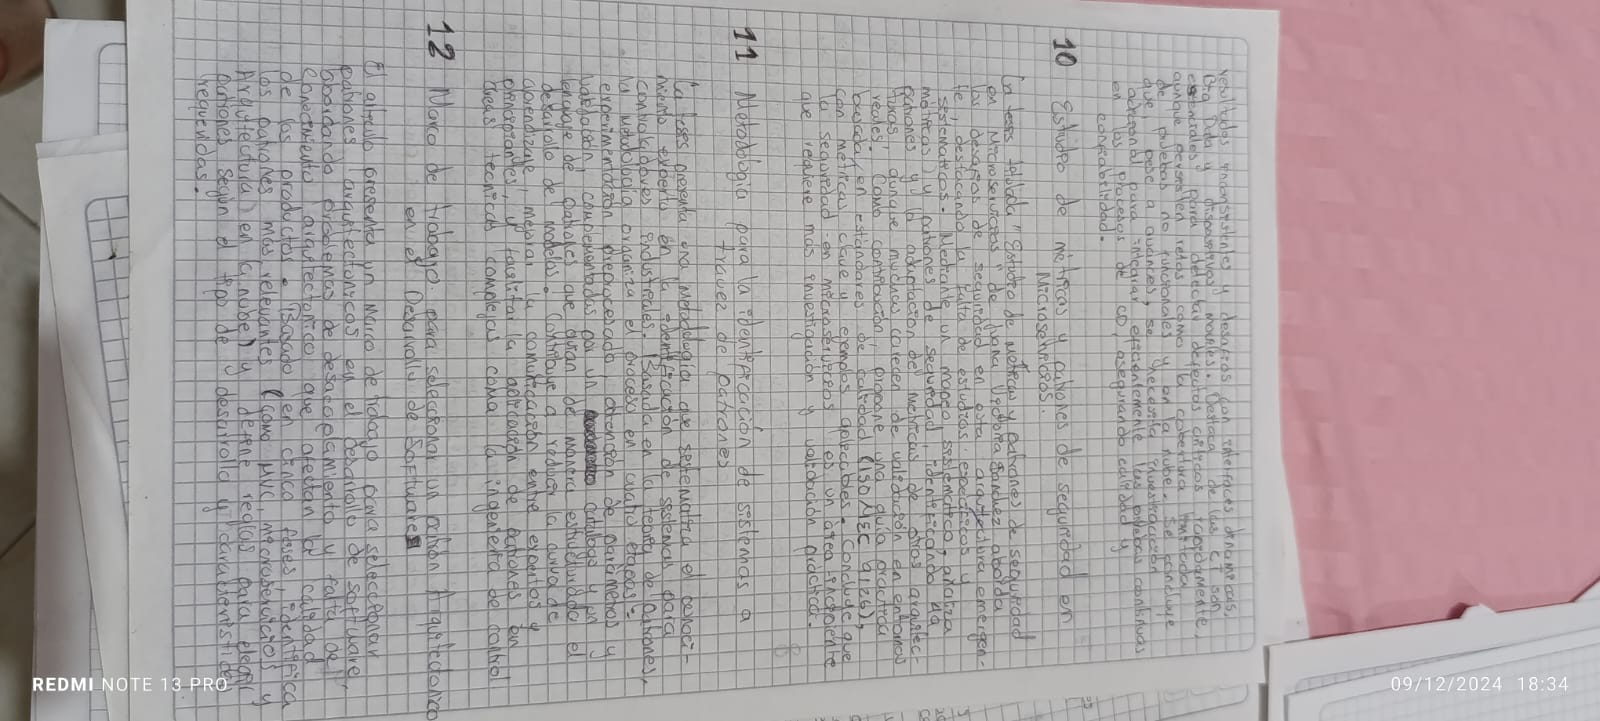 resultados inconsistentes y desafíos con interfaces dinámicas,
Big Data y dispositivos móviles. Destaca de las CI son
esenciales para detectar defectos críticos tempranamente,
aunque persisten retos como la cobertura limitada
de pruebas no funcionales y en la nube. Se concluye
que, pese a avances, se necesita investigación
adicional para integrar eficientemente las pruebas continuas
en los procesos de CD, asegurando calidad y
confiabilidad.
10 Estudio de métricas y patrones de seguridad en
Microservicios.
La tesis titulada "Estudio de métricas y patrones de seguridad
en Microservicios" de Juana Victoria Sanchez aborda
los desafíos de seguridad en esta arquitectura emergen-
te, destacando la falta de estudios específicos y
sistematicos. Mediante un mapeo sistematico, analiza
métricas y patrones de seguridad, identificando
patrones y la adaptación de métricas de otras arquitec-
turas, aunque muchas carecen de validación en entornos
reales. Como contribución, propone una guía practica
basada en estándares de calidad (ISO/IEC 9126),
con métricas clave y ejemplos aplicables. Concluye que
la seguridad en microservicios es un área incipiente
que requiere más investigación y validación práctica.
11 Metodología para la identificación de sistemas a
travez de patrones
La tesis presenta una metodología que sistematiza el conoci-
miento experto en la identificación de sistemas para
controladores industriales. Basada en la teoría de patrones,
la metodología organiza el proceso en cuatro etapas:
experimentación, preprocesado, obtención de parámetros y
validación, complementadas por un catálogo y un
lenguaje de patrones que guían de manera estructurada el
desarrollo de modelos. Contribuye a reducir la curva de
aprendizaje, mejorar la comunicación entre expertos y
principiantes, y facilitar la aplicación de patrones en
áreas tecnicas complejas como la ingeniería de control
12 Marco de trabajo para seleccionar un patrón Arquitectonico
en el Desarrollo de Software
El articulo presenta un Marco de trabajo para seleccionar
patrones arquitectonicos en el desarrollo de software,
abordando problemas de desacoplamiento y falta de
conocimiento arquitectonico que afectan la calidad
de los productos. Basado en cinco fases, identifica
los patrones más relevantes (como MVC, microservicios y
Arquitectura en la nube) y define reglas para elegir
patrones según el tipo de desarrollo y
requeridas.